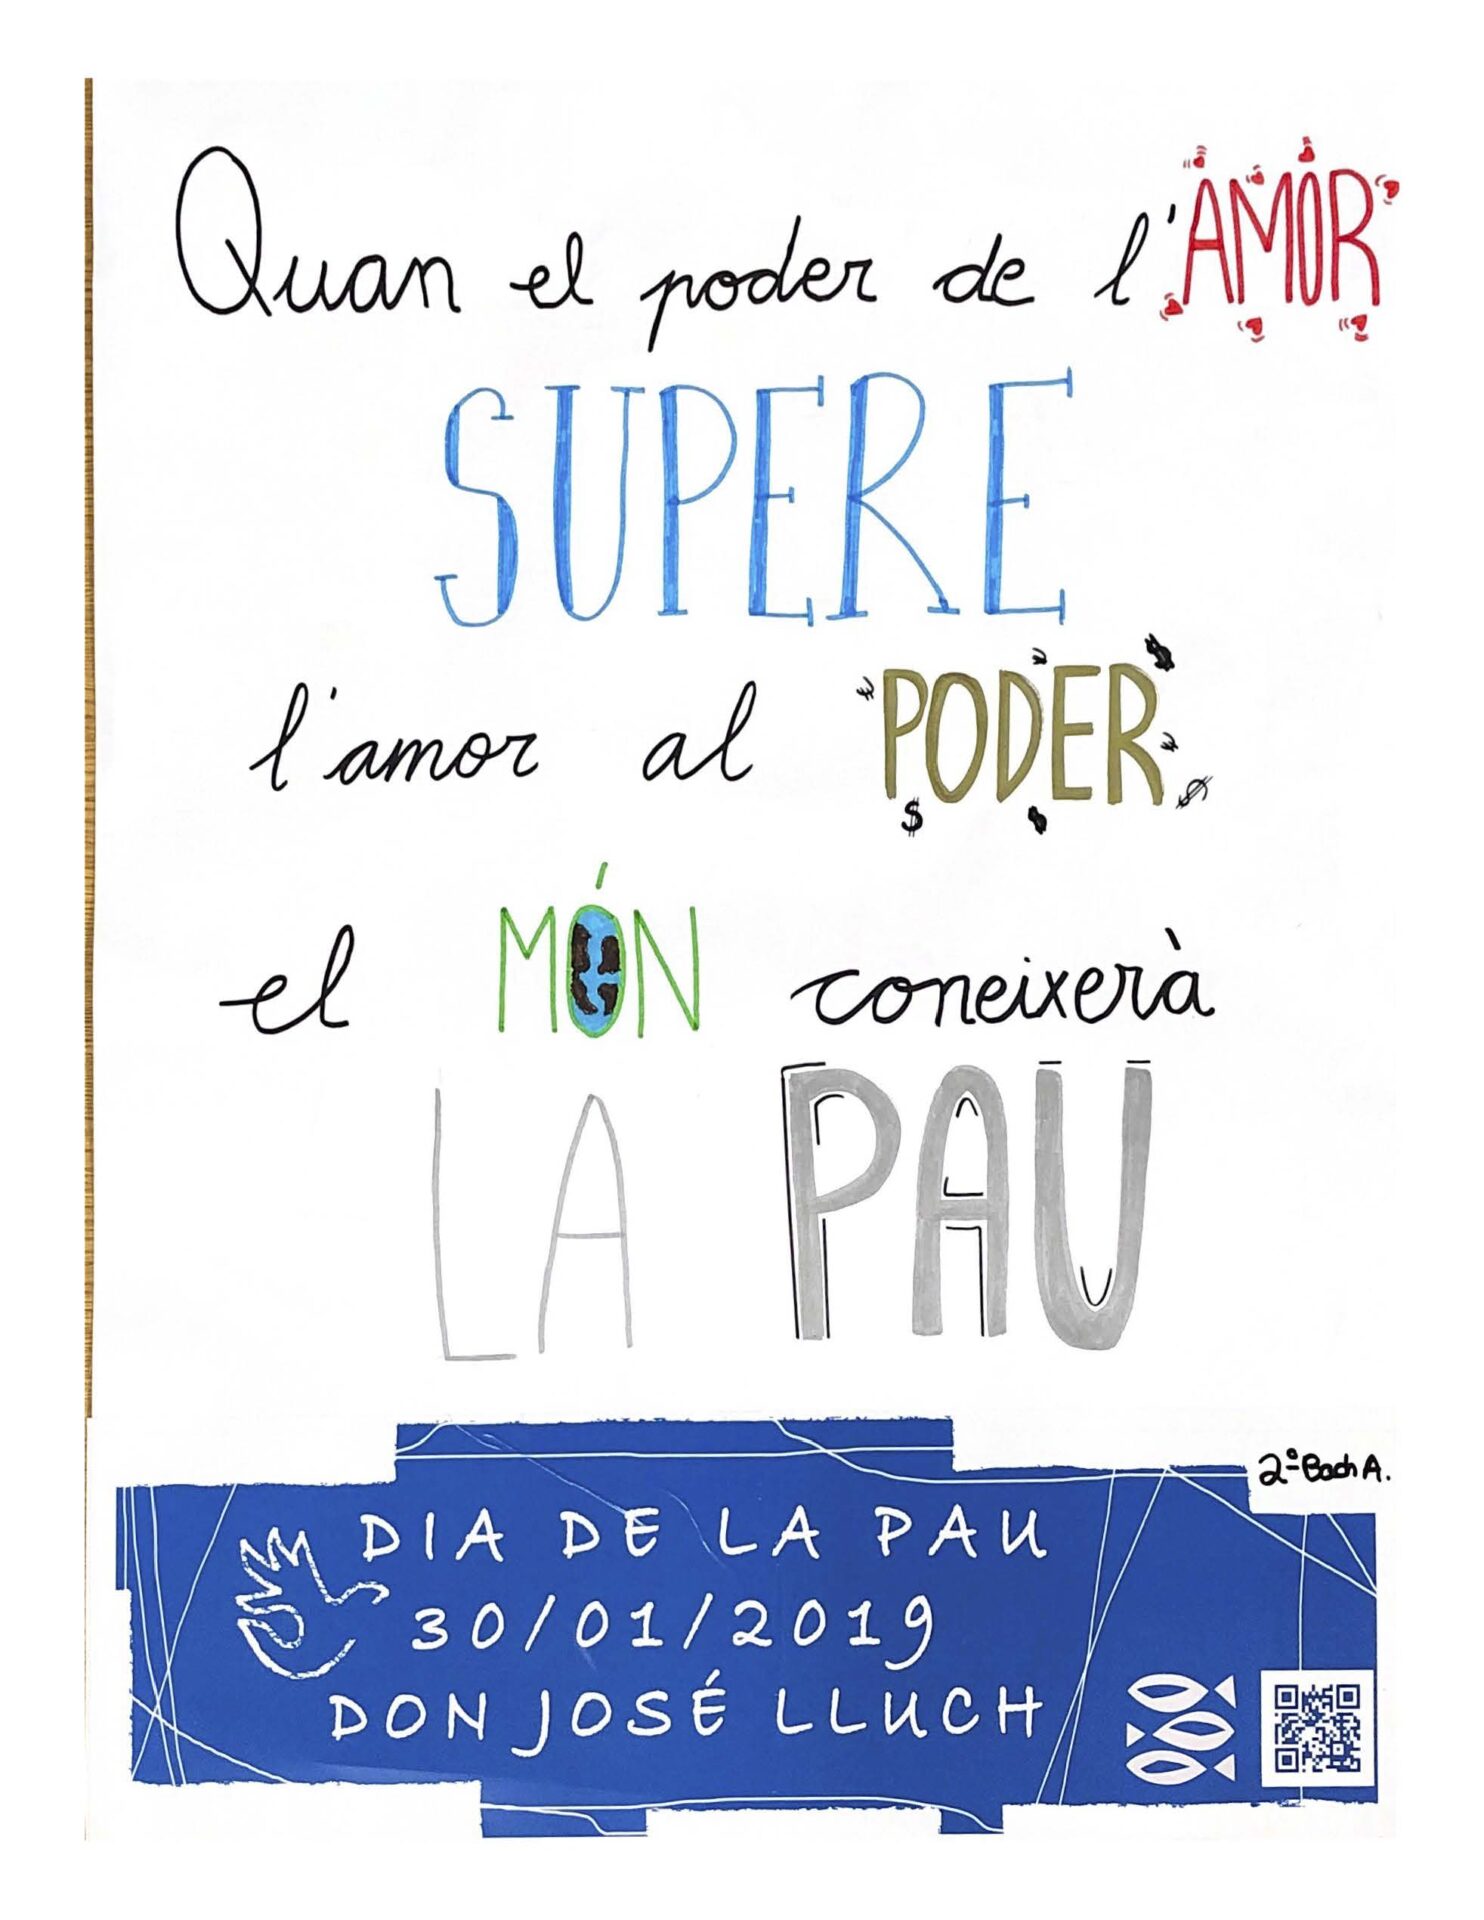 Quan el poder de l'AMOR
SUPERE
l'amor al PODER
el MÓN coneixerà
LA PAU
2º Bach A.
DIA DE LA PAU
30/01/2019
DON JOSÉ LLUCH